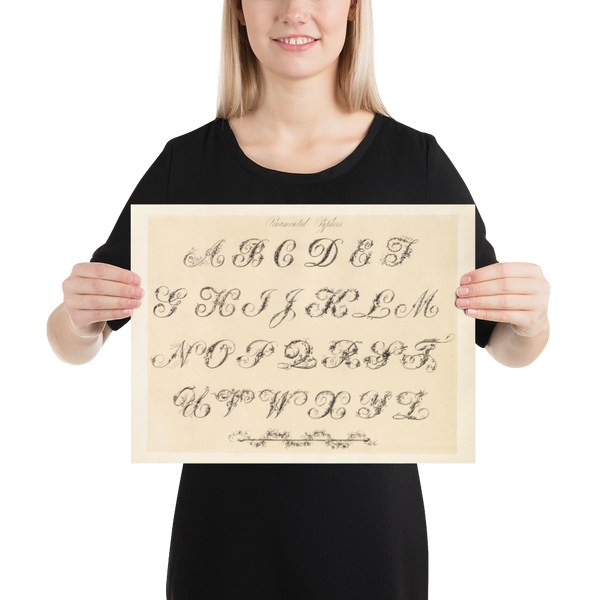 Ornamental Cyphers
A B C D E F
G H I J K L M
N O P Q R S T
U V W X Y Z